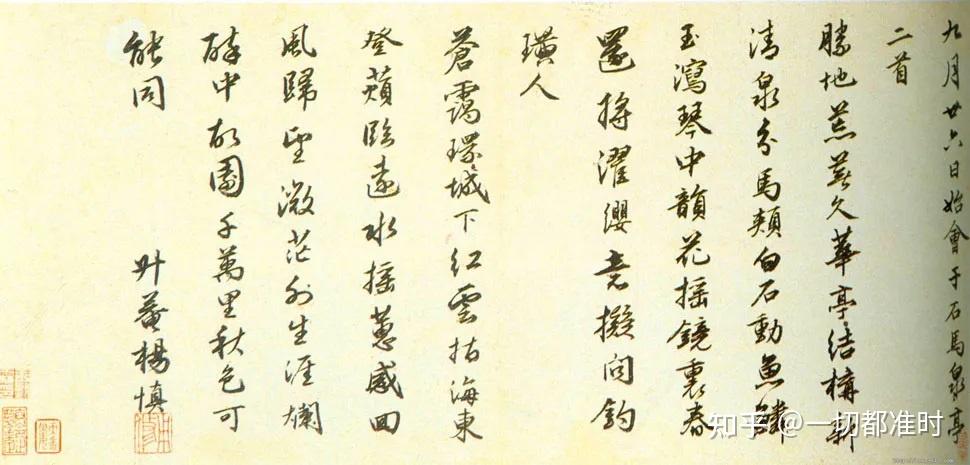 九月廿六日始會于石馬泉亭
二首
勝地荒蕪久華亭結構新
清泉分馬頰白石動魚鱗
玉瀉琴中韻花搖鏡裏春
還將濯纓意擬問釣
璜人
蒼靄環城下紅雲指海東
登蘋臨遠水搖蕙感回
風歸望微茫外生涯爛
醉中故園千萬里秋色可
能同 升菴楊慎
知乎 @一切都准时